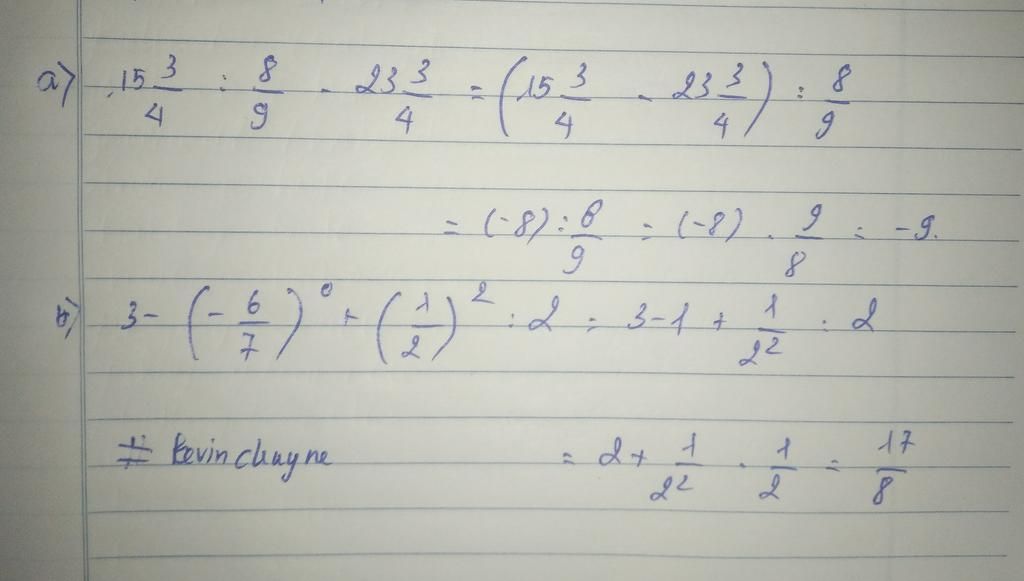 a) 15 3/4 : 8/9 - 23 3/4 = (15 3/4 - 23 3/4) : 8/9
= (-8) : 8/9 = (-8) . 9/8 = -9.
b) 3 - (-6/7)^0 + (1/2)^2 : 2 = 3 - 1 + 1/2^2 : 2
# kevinchuyne = 2 + 1/2^2 . 1/2 = 17/8